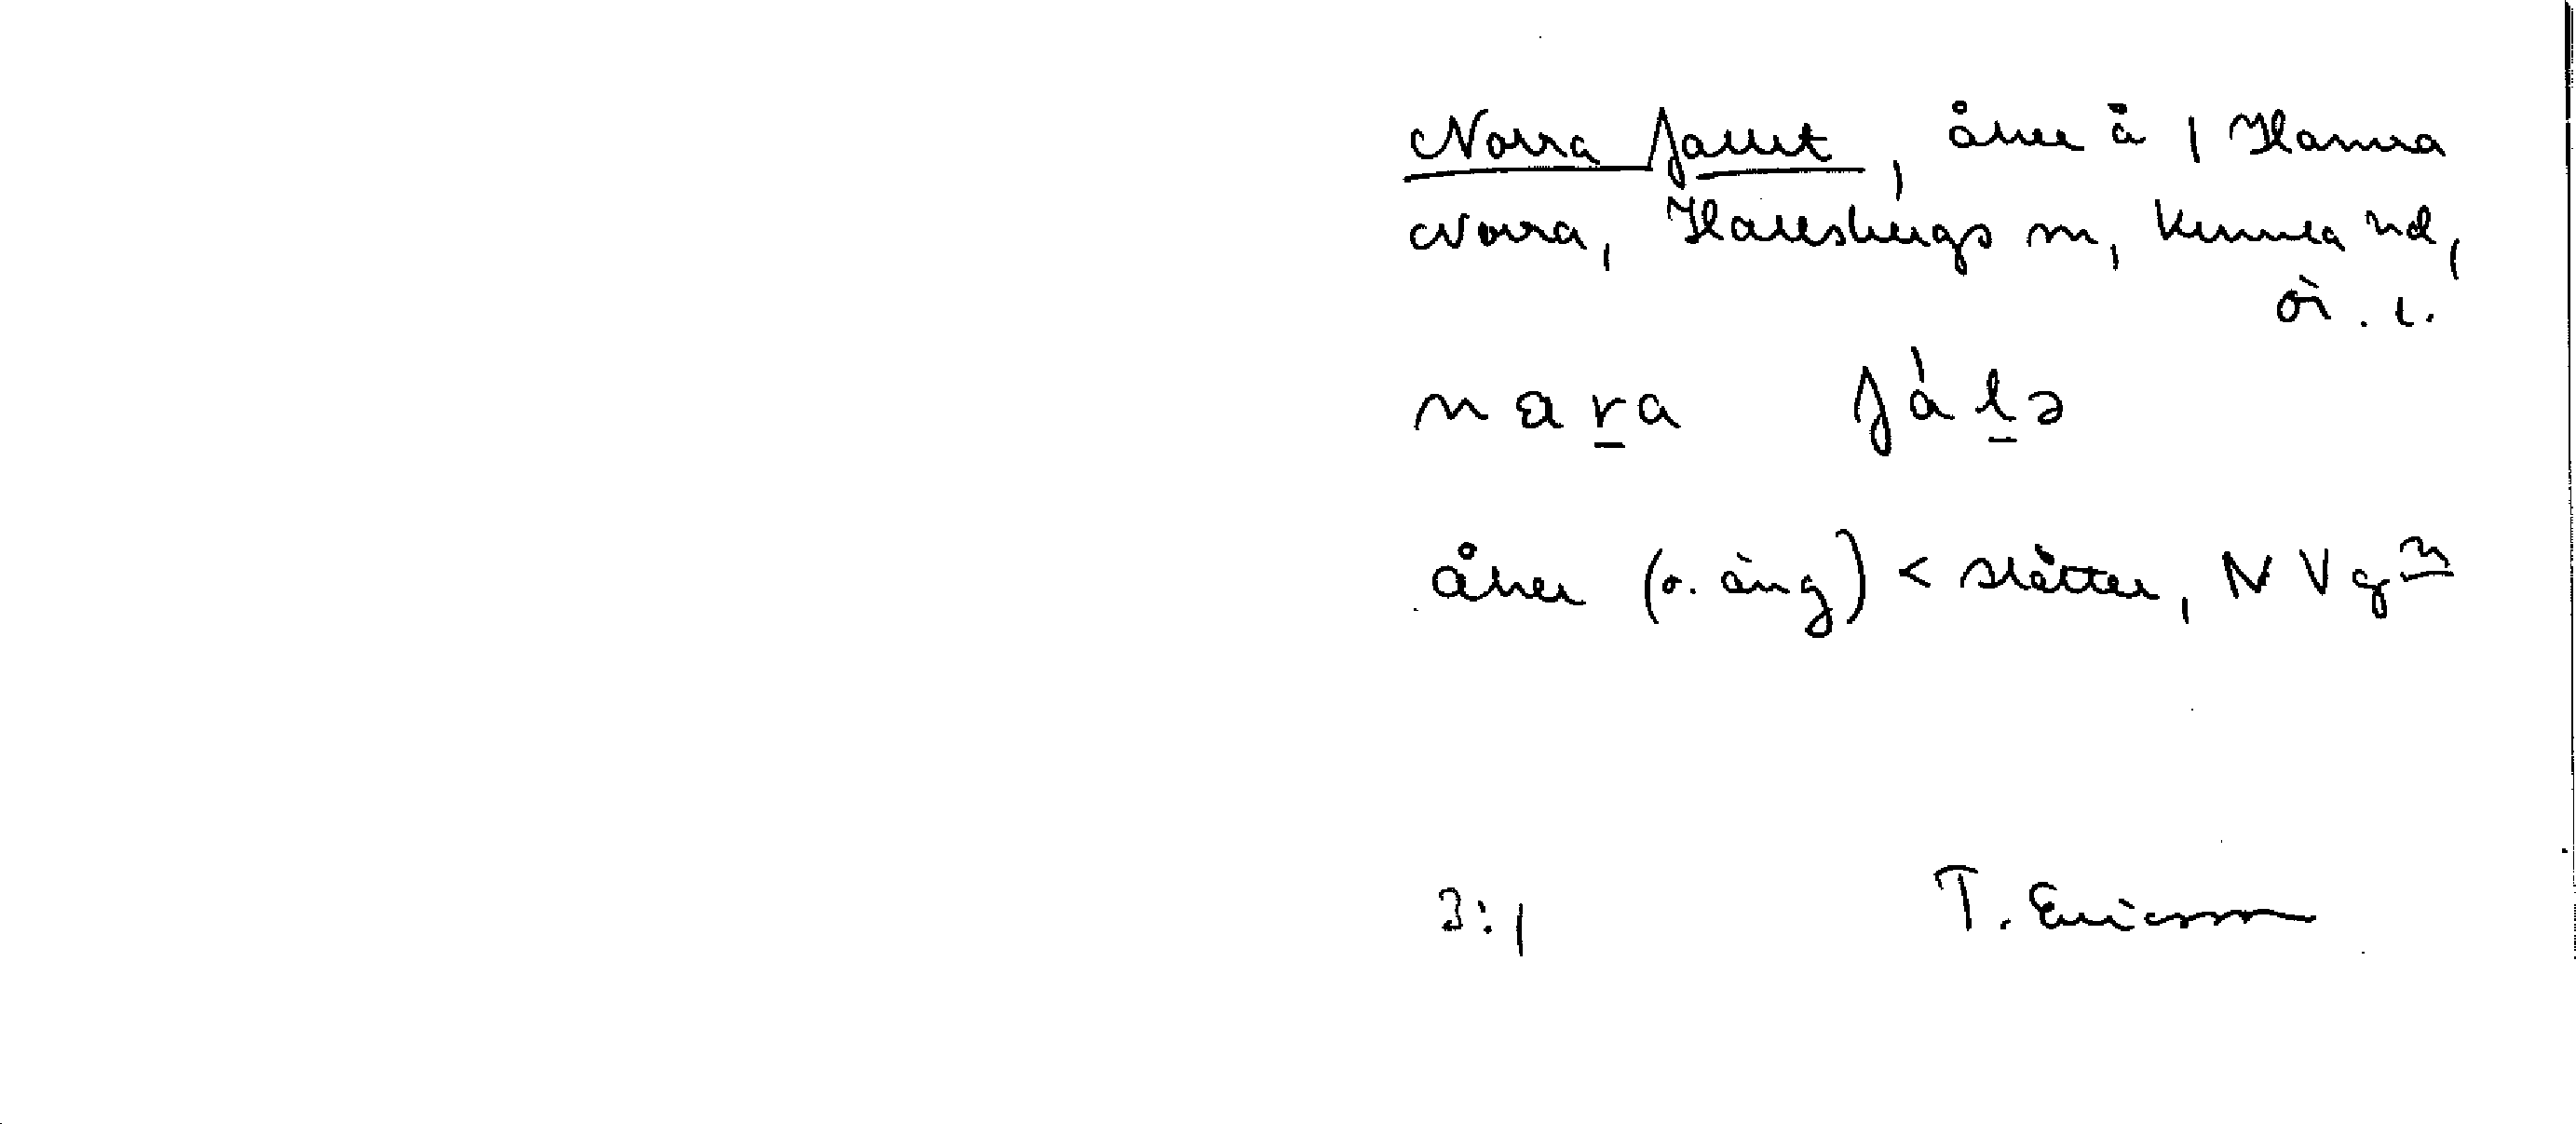 Norra fallet, åker å 1 Hamra
Norra, Hallsbergs sn, Kumla hd,
ör. l.
nara fàlə
åker (o. äng) < slåtter, N V g
3:1 T. Ericsson